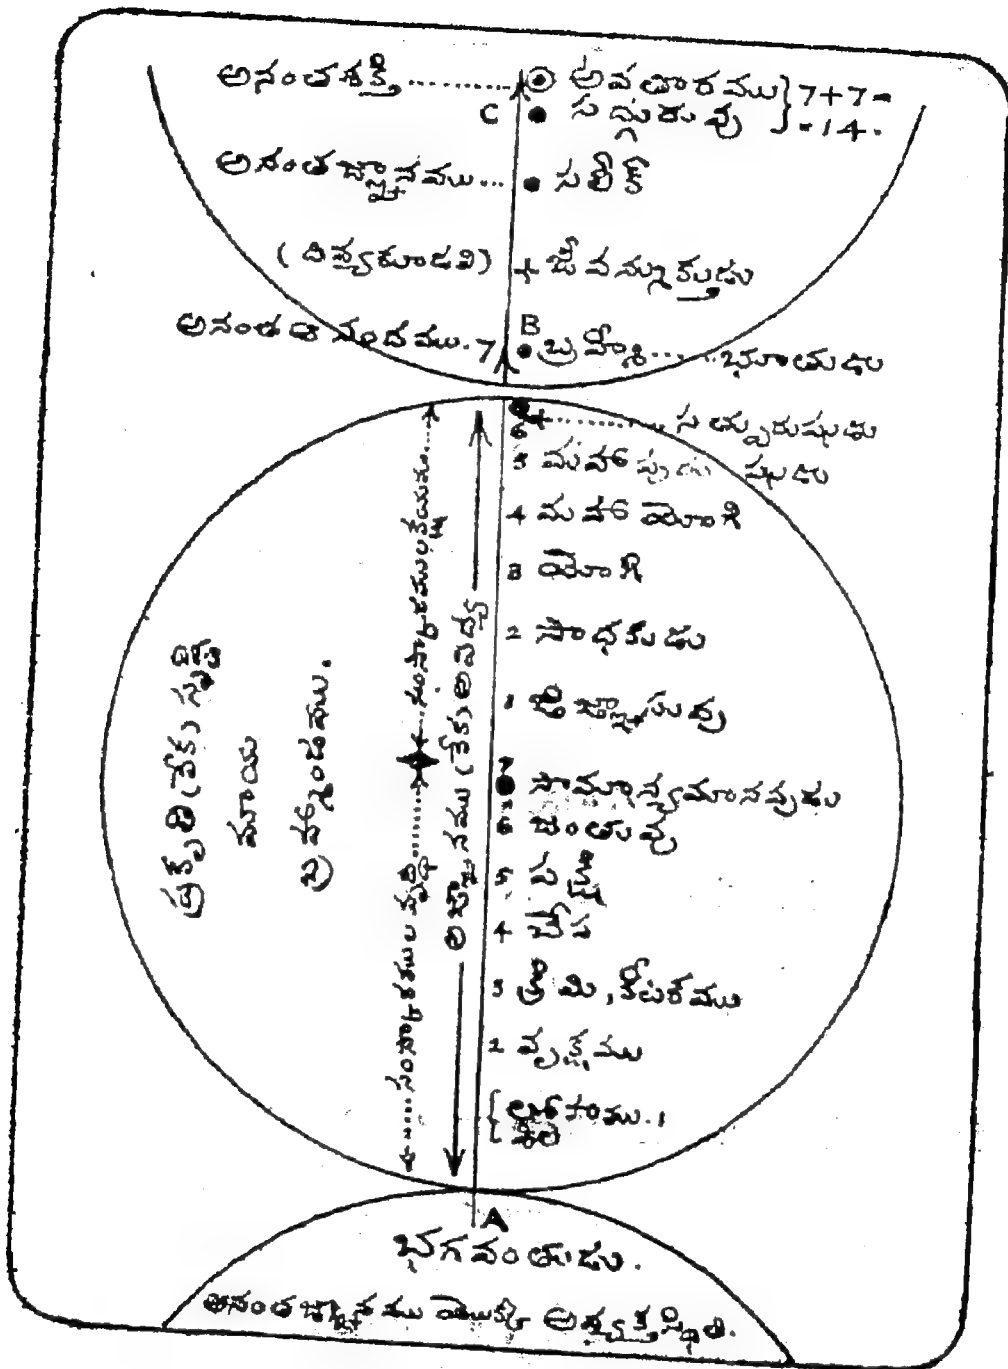 అనంతశక్తి .......... అవతారము } 7+7=
C ● సద్గురువు } =14.
అనంతజ్ఞానము... ● సలీక్
(దివ్యకూడలి) + జీవన్ముక్తుడు
అనంతఆనందము. 7 B ● బ్రహ్మీ......భూతుడు
6 +............ సత్పురుషుడు
5 మహాపురుషుడు
4 మహాయోగి
3 యోగి
2 సాధకుడు
1 జిజ్ఞాసువు
7 సామాన్యమానవుడు
6 జంతువు
5 పక్షి
4 చేప
3 క్రిమి, కీటకము
2 వృక్షము
{ లోహము. 1
శిల
ప్రకృతి (లేక) సృష్టి
మాయ
బ్రహ్మాండము.
సంస్కారముల వృద్ధి............సంస్కారములక్షయము...
అజ్ఞానము (లేక) అవిద్య
A
భగవంతుడు.
అనంతజ్ఞానము యొక్క అవ్యక్తస్థితి.